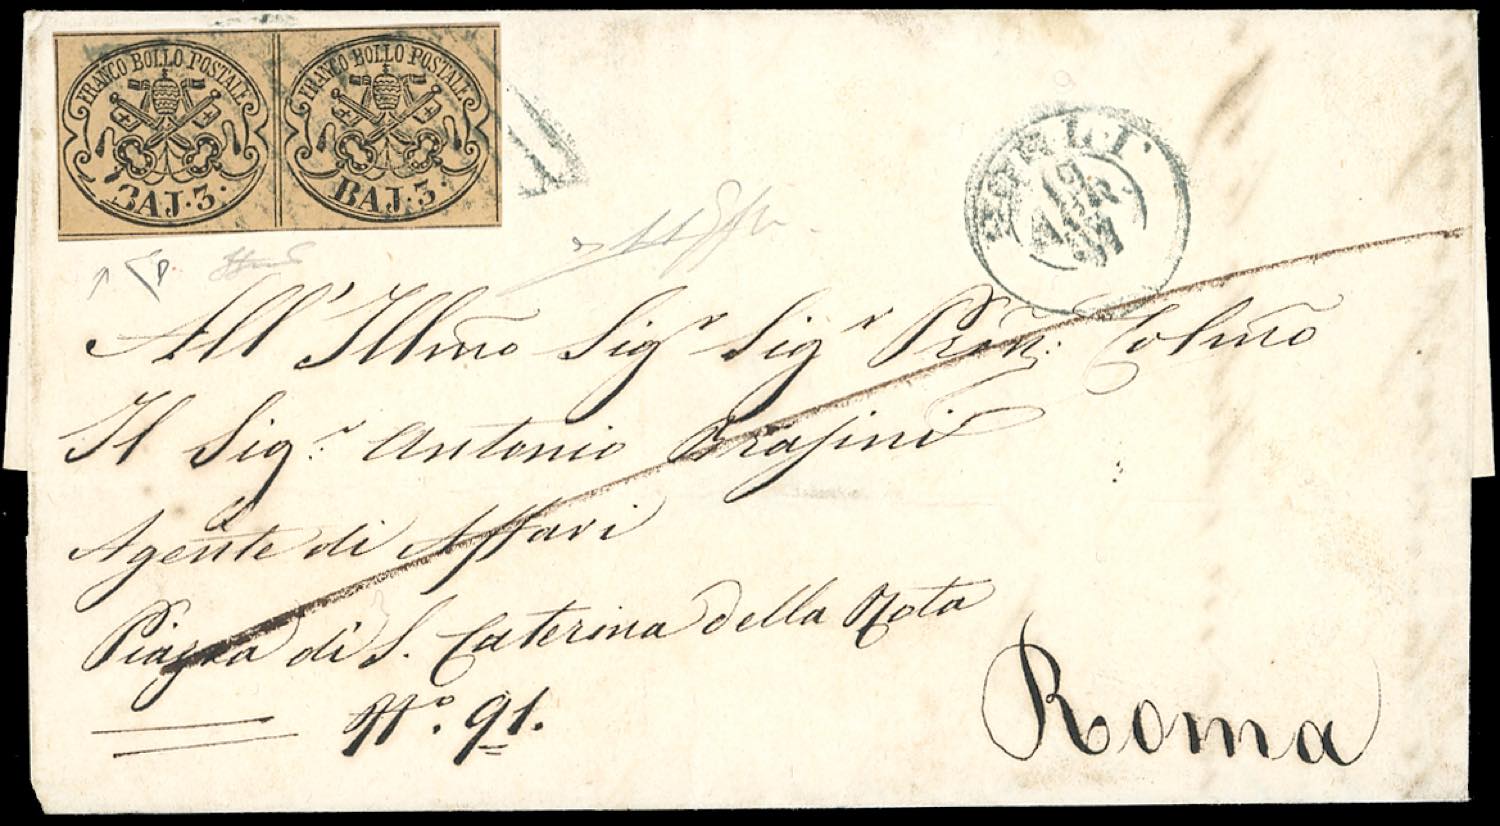 FRANCO BOLLO POSTALE
BAJ. 3.
FRANCO BOLLO POSTALE
BAJ. 3.
12
APR.
57
All' Illmo Sigr Sigr Prõn: Colmõ
Il Sigr. Antonio Grasini
Agente di Affari
Piazza di S. Caterina della Rota
No. 91.
Roma